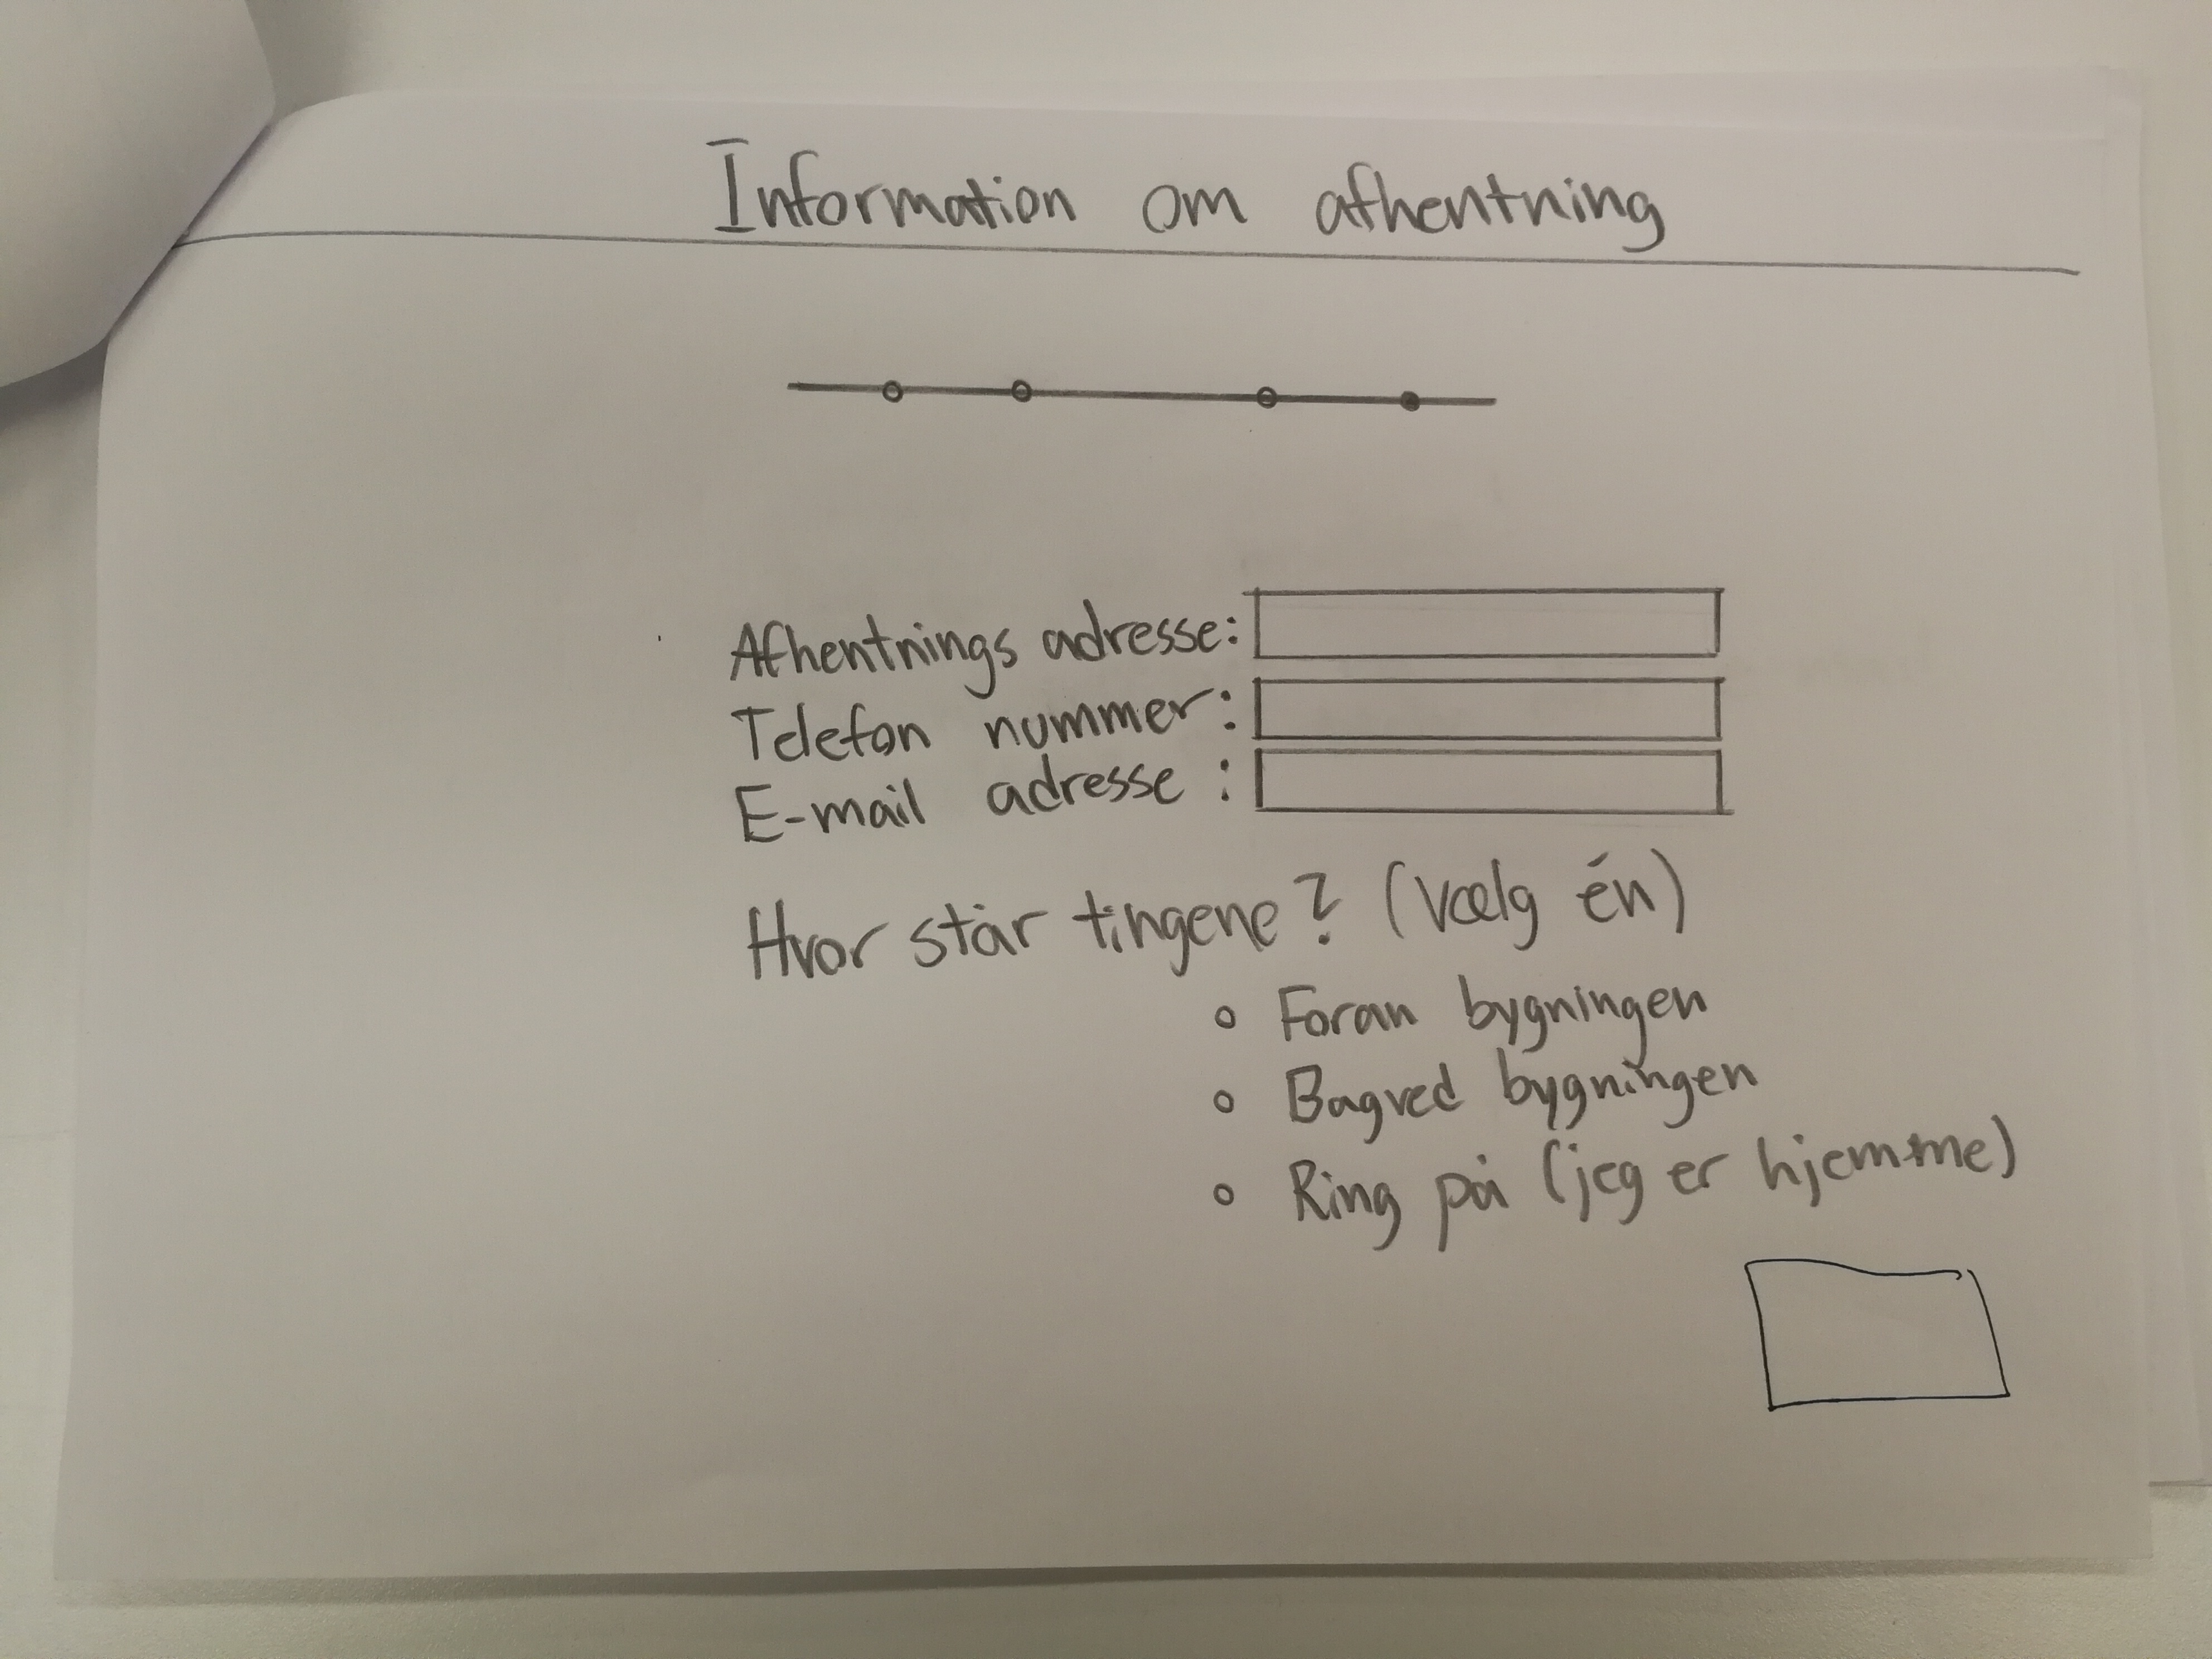 Information om afhentning
Afhentnings adresse:
Telefon nummer:
E-mail adresse :
Hvor står tingene? (Vælg én)
Foran bygningen
Bagved bygningen
Ring på (jeg er hjemme)